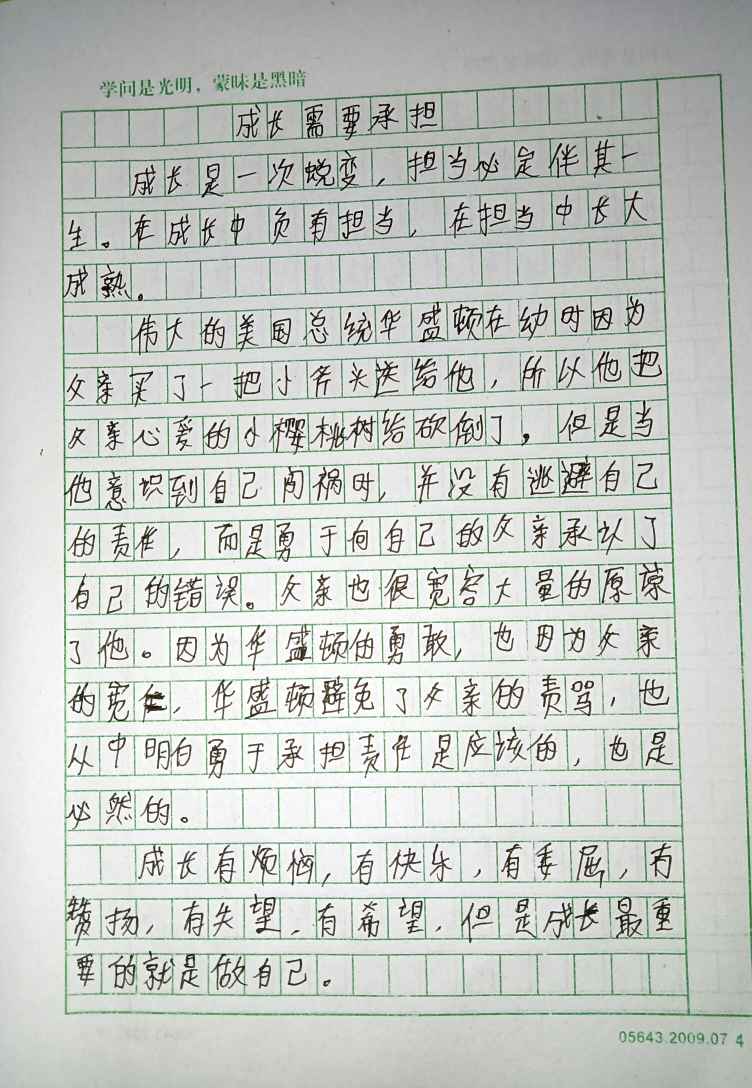 学问是光明，蒙昧是黑暗
成长需要承担
成长是一次蜕变，担当必定伴其一
生。在成长中负有担当，在担当中长大
成熟。
伟大的美国总统华盛顿在幼时因为
父亲买了一把小斧头送给他，所以他把
父亲心爱的小樱桃树给砍倒了。但是当
他意识到自己闯祸时，并没有逃避自己
的责任，而是勇于向自己的父亲承认了
自己的错误。父亲也很宽容大量的原谅
了他。因为华盛顿的勇敢，也因为父亲
的宽，华盛顿避免了父亲的责骂，也
从中明白勇于承担责任是应该的，也是
必然的。
成长有烦恼，有快乐，有委屈，有
赞扬，有失望，有希望，但是成长最重
要的就是做自己。
05643.2009.07 4